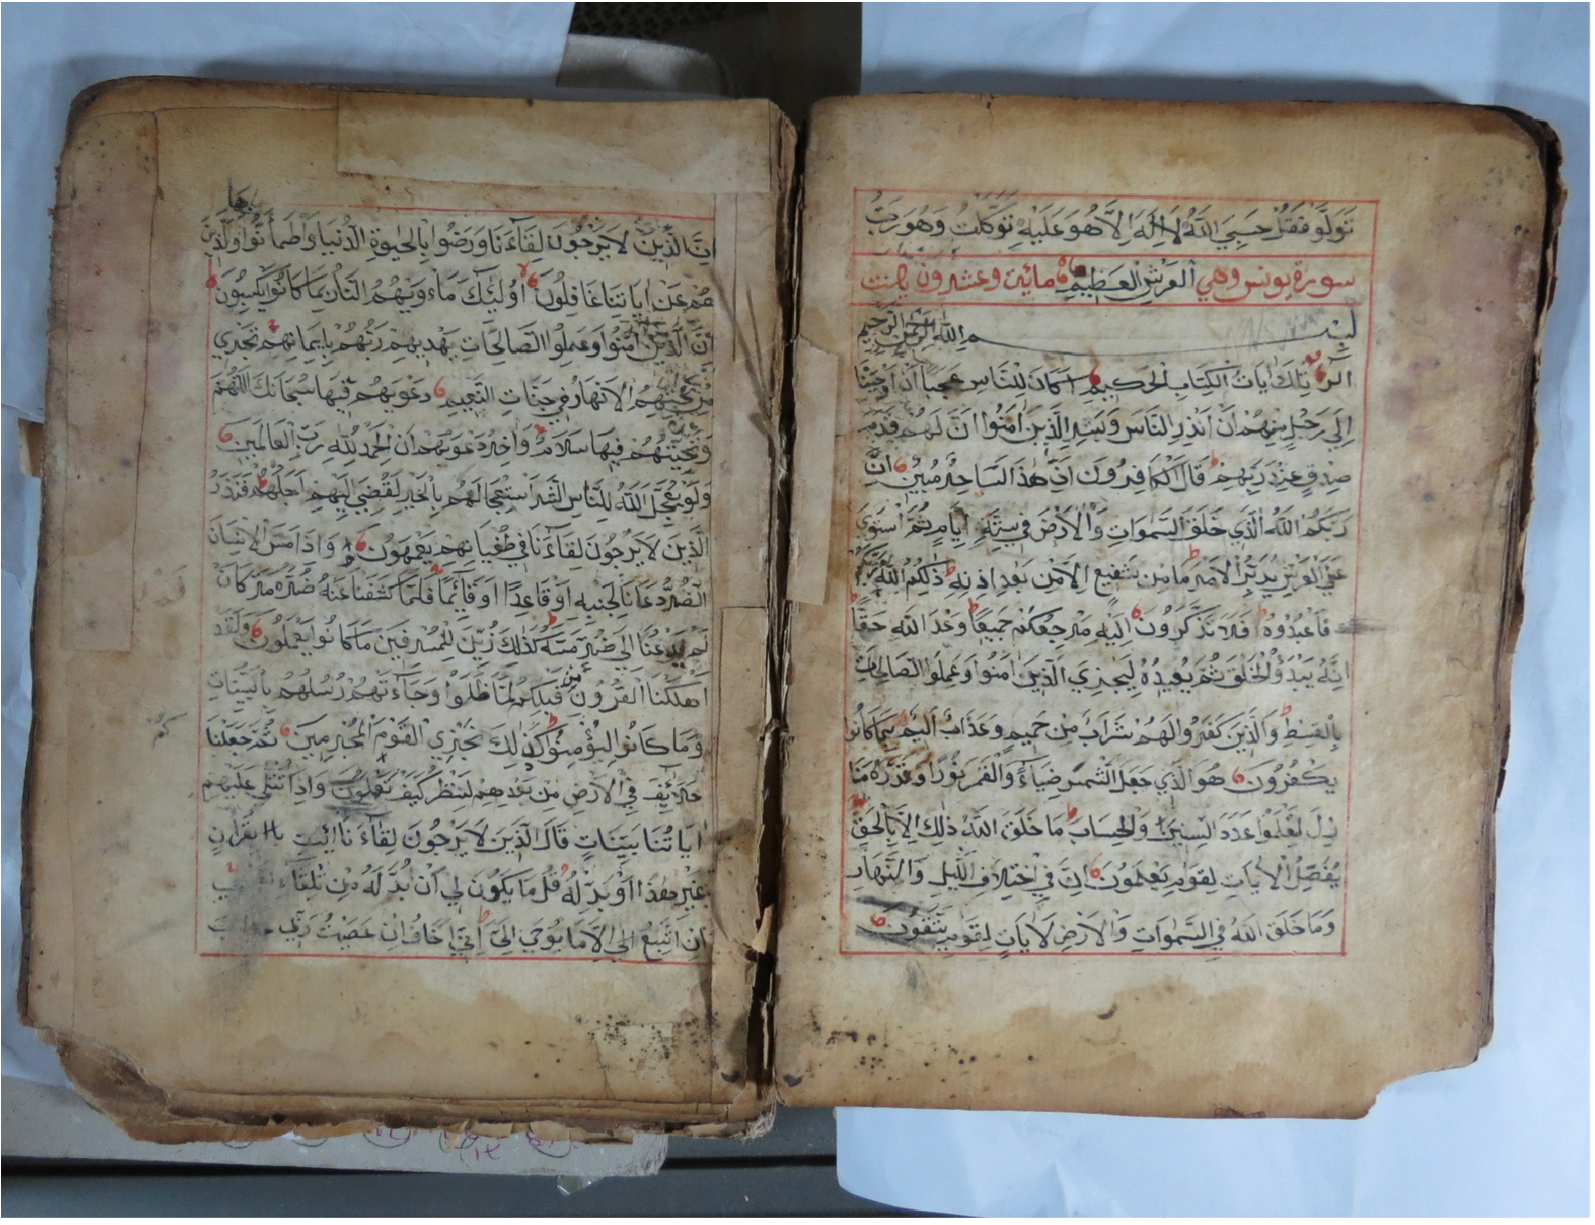 تَوَلَّوْا فَقُلْ حَسْبِيَ اللَّهُ لَا إِلَهَ إِلَّا هُوَ عَلَيْهِ تَوَكَّلْتُ وَهُوَ رَبُّ
سورة يونس وهي الْعَرْشِ الْعَظِيمِ مائة وعشرون
بسم الله الرحمن الرحيم
الر تِلْكَ ايَاتُ الْكِتَابِ الْحَكِيمِ اَكَانَ لِلنَّاسِ عَجَبًا اَنْ اَوْحَيْنَا
اِلَى رَجُلٍ مِنْهُمْ اَنْ اَنْذِرِ النَّاسَ وَبَشِّرِ الَّذِينَ امَنُوا اَنَّ لَهُمْ قَدَمَ
صِدْقٍ عِنْدَ رَبِّهِمْ قَالَ الْكَافِرُونَ اِنَّ هَذَا لَسَاحِرٌ مُبِينٌ اِنَّ
رَبَّكُمُ اللَّهُ الَّذِي خَلَقَ السَّمَوَاتِ وَالْاَرْضَ فِي سِتَّةِ اَيَّامٍ ثُمَّ اسْتَوَى
عَلَى الْعَرْشِ يُدَبِّرُ الْاَمْرَ مَا مِنْ شَفِيعٍ اِلَّا مِنْ بَعْدِ اِذْنِهِ ذَلِكُمُ اللَّهُ رَبُّكُمْ
فَاعْبُدُوهُ اَفَلَا تَذَكَّرُونَ اِلَيْهِ مَرْجِعُكُمْ جَمِيعًا وَعْدَ اللَّهِ حَقًّا
اِنَّهُ يَبْدَؤُا الْخَلْقَ ثُمَّ يُعِيدُهُ لِيَجْزِيَ الَّذِينَ امَنُوا وَعَمِلُوا الصَّالِحَاتِ
بِالْقِسْطِ وَالَّذِينَ كَفَرُوا لَهُمْ شَرَابٌ مِنْ حَمِيمٍ وَعَذَابٌ اَلِيمٌ بِمَا كَانُوا
يَكْفُرُونَ هُوَ الَّذِي جَعَلَ الشَّمْسَ ضِيَاءً وَالْقَمَرَ نُورًا وَقَدَّرَهُ مَنَا
زِلَ لِتَعْلَمُوا عَدَدَ السِّنِينَ وَالْحِسَابَ مَا خَلَقَ اللَّهُ ذَلِكَ اِلَّا بِالْحَقِّ
يُفَصِّلُ الْايَاتِ لِقَوْمٍ يَعْلَمُونَ اِنَّ فِي اخْتِلَافِ اللَّيْلِ وَالنَّهَارِ
وَمَا خَلَقَ اللَّهُ فِي السَّمَوَاتِ وَالْاَرْضِ لَايَاتٍ لِقَوْمٍ يَتَّقُونَ
اِنَّ الَّذِينَ لَا يَرْجُونَ لِقَاءَنَا وَرَضُوا بِالْحَيَوةِ الدُّنْيَا وَاطْمَأَنُّوا بها وَالَّذِينَ
هُمْ عَنْ ايَاتِنَا غَافِلُونَ اُولَئِكَ مَأْوَيهُمُ النَّارُ بِمَا كَانُوا يَكْسِبُونَ
اِنَّ الَّذِينَ امَنُوا وَعَمِلُوا الصَّالِحَاتِ يَهْدِيهِمْ رَبُّهُمْ بِاِيمَانِهِمْ تَجْرِي
مِنْ تَحْتِهِمُ الْاَنْهَارُ فِي جَنَّاتِ النَّعِيمِ دَعْوَيهُمْ فِيهَا سُبْحَانَكَ اللَّهُمَّ
وَتَحِيَّتُهُمْ فِيهَا سَلَامٌ وَاخِرُ دَعْوَيهُمْ اَنِ الْحَمْدُ لِلَّهِ رَبِّ الْعَالَمِينَ
وَلَوْ يُعَجِّلُ اللَّهُ لِلنَّاسِ الشَّرَّ اسْتِعْجَالَهُمْ بِالْخَيْرِ لَقُضِيَ اِلَيْهِمْ اَجَلُهُمْ فَنَذَرُ
الَّذِينَ لَا يَرْجُونَ لِقَاءَنَا فِي طُغْيَانِهِمْ يَعْمَهُونَ وَاِذَا مَسَّ الْاِنْسَانَ
الضُّرُّ دَعَانَا لِجَنْبِهِ اَوْ قَاعِدًا اَوْ قَائِمًا فَلَمَّا كَشَفْنَا عَنْهُ ضُرَّهُ مَرَّ كَاَنْ
لَمْ يَدْعُنَا اِلَى ضُرٍّ مَسَّهُ كَذَلِكَ زُيِّنَ لِلْمُسْرِفِينَ مَا كَانُوا يَعْمَلُونَ وَلَقَدْ
اَهْلَكْنَا الْقُرُونَ مِنْ قَبْلِكُمْ لَمَّا ظَلَمُوا وَجَاءَتْهُمْ رُسُلُهُمْ بِالْبَيِّنَاتِ
وَمَا كَانُوا لِيُؤْمِنُوا كَذَلِكَ نَجْزِي الْقَوْمَ الْمُجْرِمِينَ ثُمَّ جَعَلْنَا
كم
خَلَائِفَ فِي الْاَرْضِ مِنْ بَعْدِهِمْ لِنَنْظُرَ كَيْفَ تَعْمَلُونَ وَاِذَا تُتْلَى عَلَيْهِمْ
ايَاتُنَا بَيِّنَاتٍ قَالَ الَّذِينَ لَا يَرْجُونَ لِقَاءَنَا ائْتِ بِقُرْانٍ
غَيْرِ هَذَا اَوْ بَدِّلْهُ قُلْ مَا يَكُونُ لِي اَنْ اُبَدِّلَهُ مِنْ تِلْقَاءِ
اِنْ اَتَّبِعُ اِلَّا مَا يُوحَى اِلَيَّ اِنِّي اَخَافُ اِنْ عَصَيْتُ رَبِّي